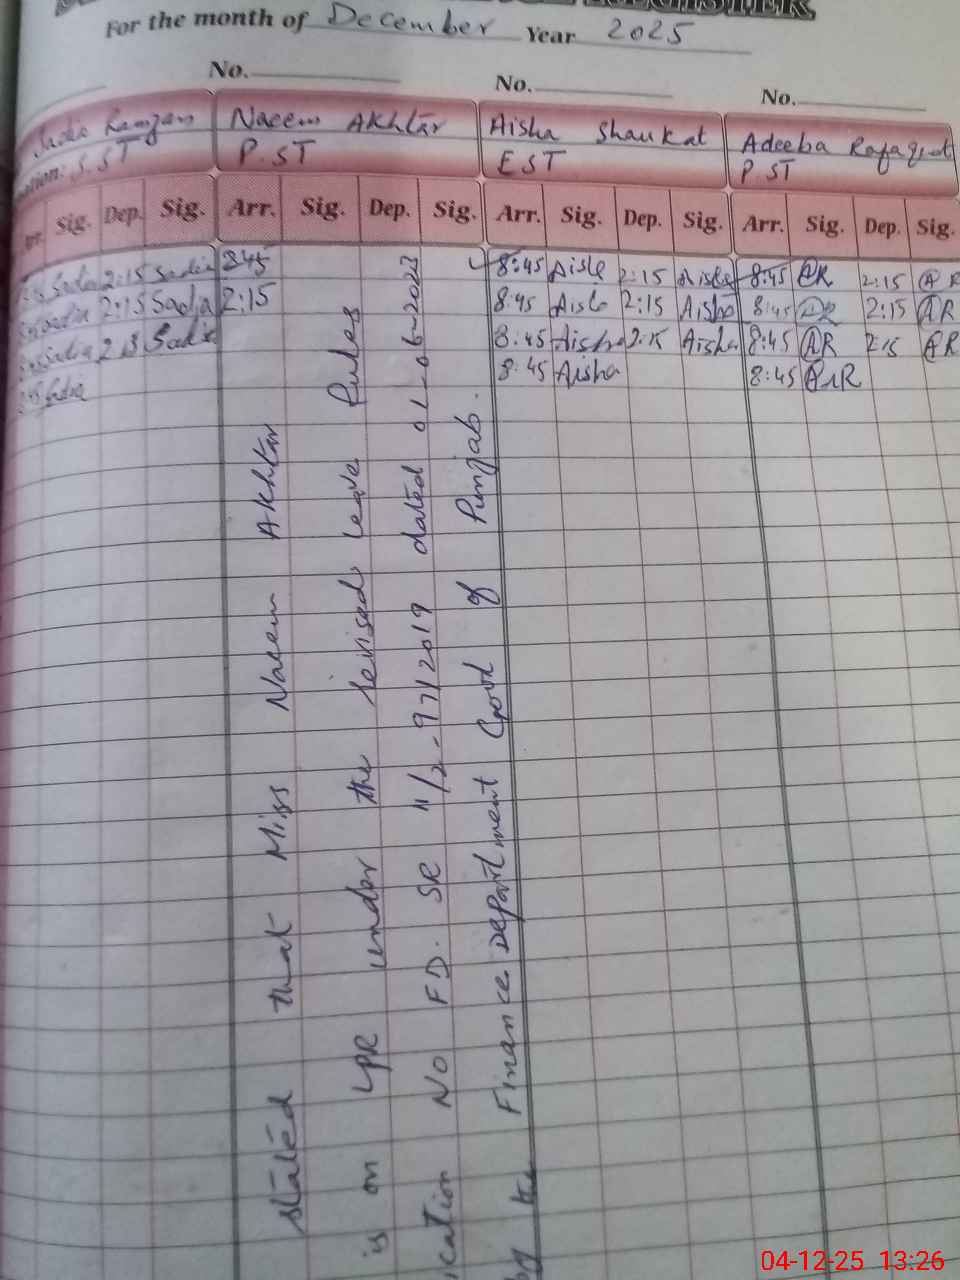 REGISTER
For the month of December Year 2025
No. No. No.
Sadia Ramzan Naeem Akhtar Aisha Shaukat Adeeba Rafaqat
S.ST P.ST EST PST
Arr. Sig. Dep. Sig. Arr. Sig. Dep. Sig. Arr. Sig. Dep. Sig. Arr. Sig. Dep. Sig.
Sadia 2:15 Sadia 8:45 8:45 Aisha 2:15 Aisha 8:45 AR 2:15 AR
Sadia 2:15 Sadia 2:15 8:45 Aisha 2:15 Aisha 8:45 AR 2:15 AR
Sadia Sadia 8:45 Aisha 2:15 Aisha 8:45 AR 2:15 AR
Sadia 8:45 Aisha 8:45 AR
stated that Miss Naeem Akhtar
is on LPR under the revised leave Rules
ication No FD. SR 11/2-97/2019 dated 01-06-2023
by the Finance Department Govt of Punjab.
04-12-25 13:26